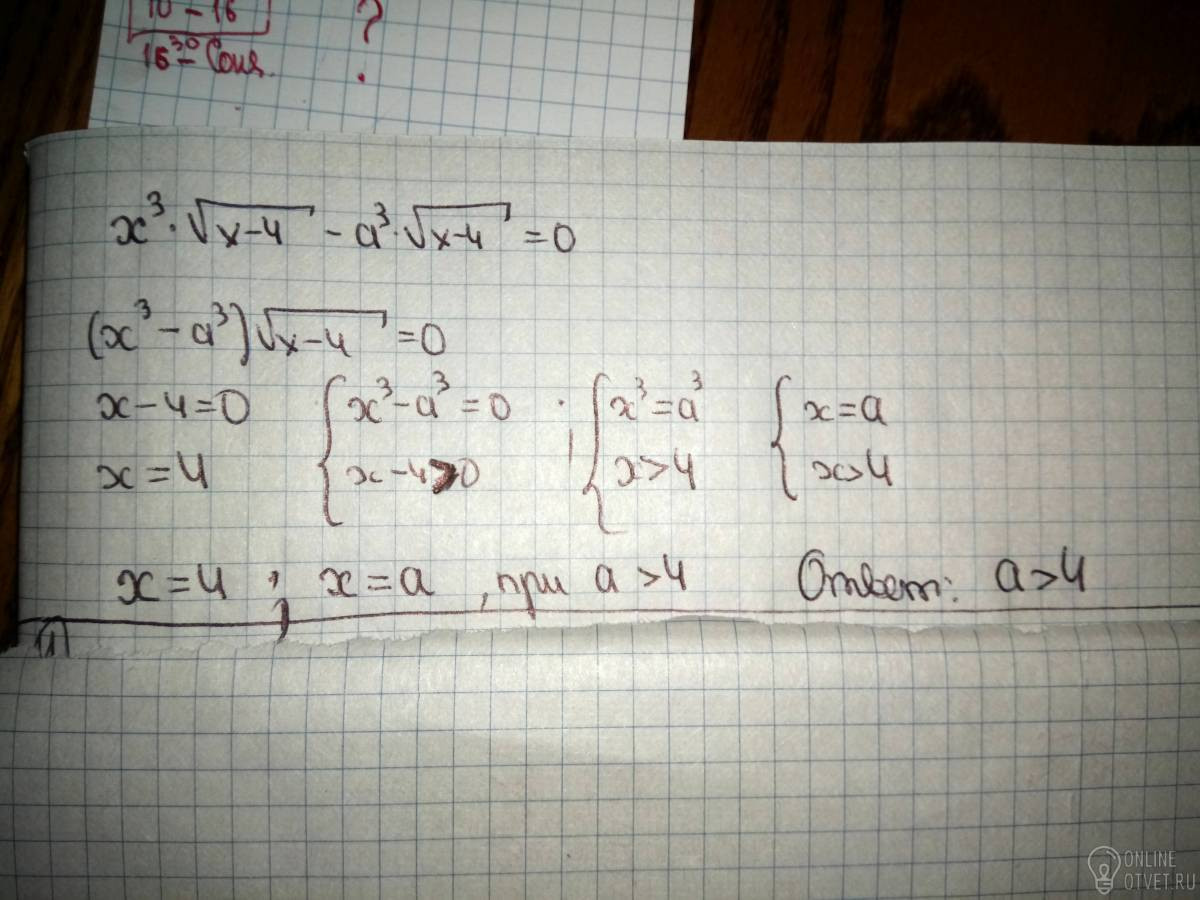 10 - 16
16³⁰ - Соня
?
x³·√(x-4) - a³·√(x-4) = 0
(x³ - a³)√(x-4) = 0
x-4=0 { x³-a³=0 { x³=a³ { x=a
x=4 x-4>0 x>4 x>4
x=4 ; x=a , при a>4 Ответ: a>4
ONLINE
OTVET.RU